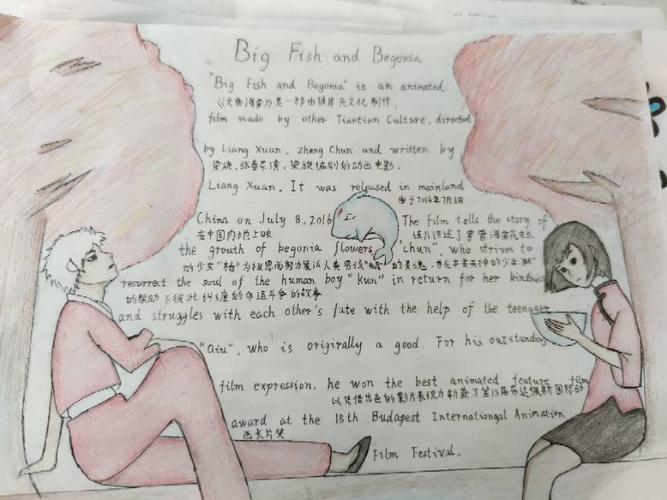 Big Fish and Begonia
"Big Fish and Begonia" is an animated
《大鱼海棠》是一部由彼岸天文化制作,
film made by other Tiantian Culture, directed
by Liang Xuan, Zhang Chun and written by
梁旋、张春导演,梁旋编剧的动画电影.
Liang Xuan. It was released in mainland
由于2016年7月8日
China on July 8, 2016 The film tells the story of
在中国内地上映 该片讲述了掌管海棠花生长
the grouth of begonia flowers, "chun", who strives to
的少女"椿"为报恩而努力复活人类男孩"鲲"的灵魂,
resurrect the soul of the human boy "Kun" in return for her kindness
的帮助下彼此纠缠的命运斗争的故事
and struggles with each other's fate with the help of the teenager
"Qiu", who is origirally a good. For his outstanding
film expression, he won the best animated feature film
以凭借出色的影片表现力斩获了第15届布达佩斯国际动
award at the 15th Budapest International Animation
画长片奖
Film Festival.